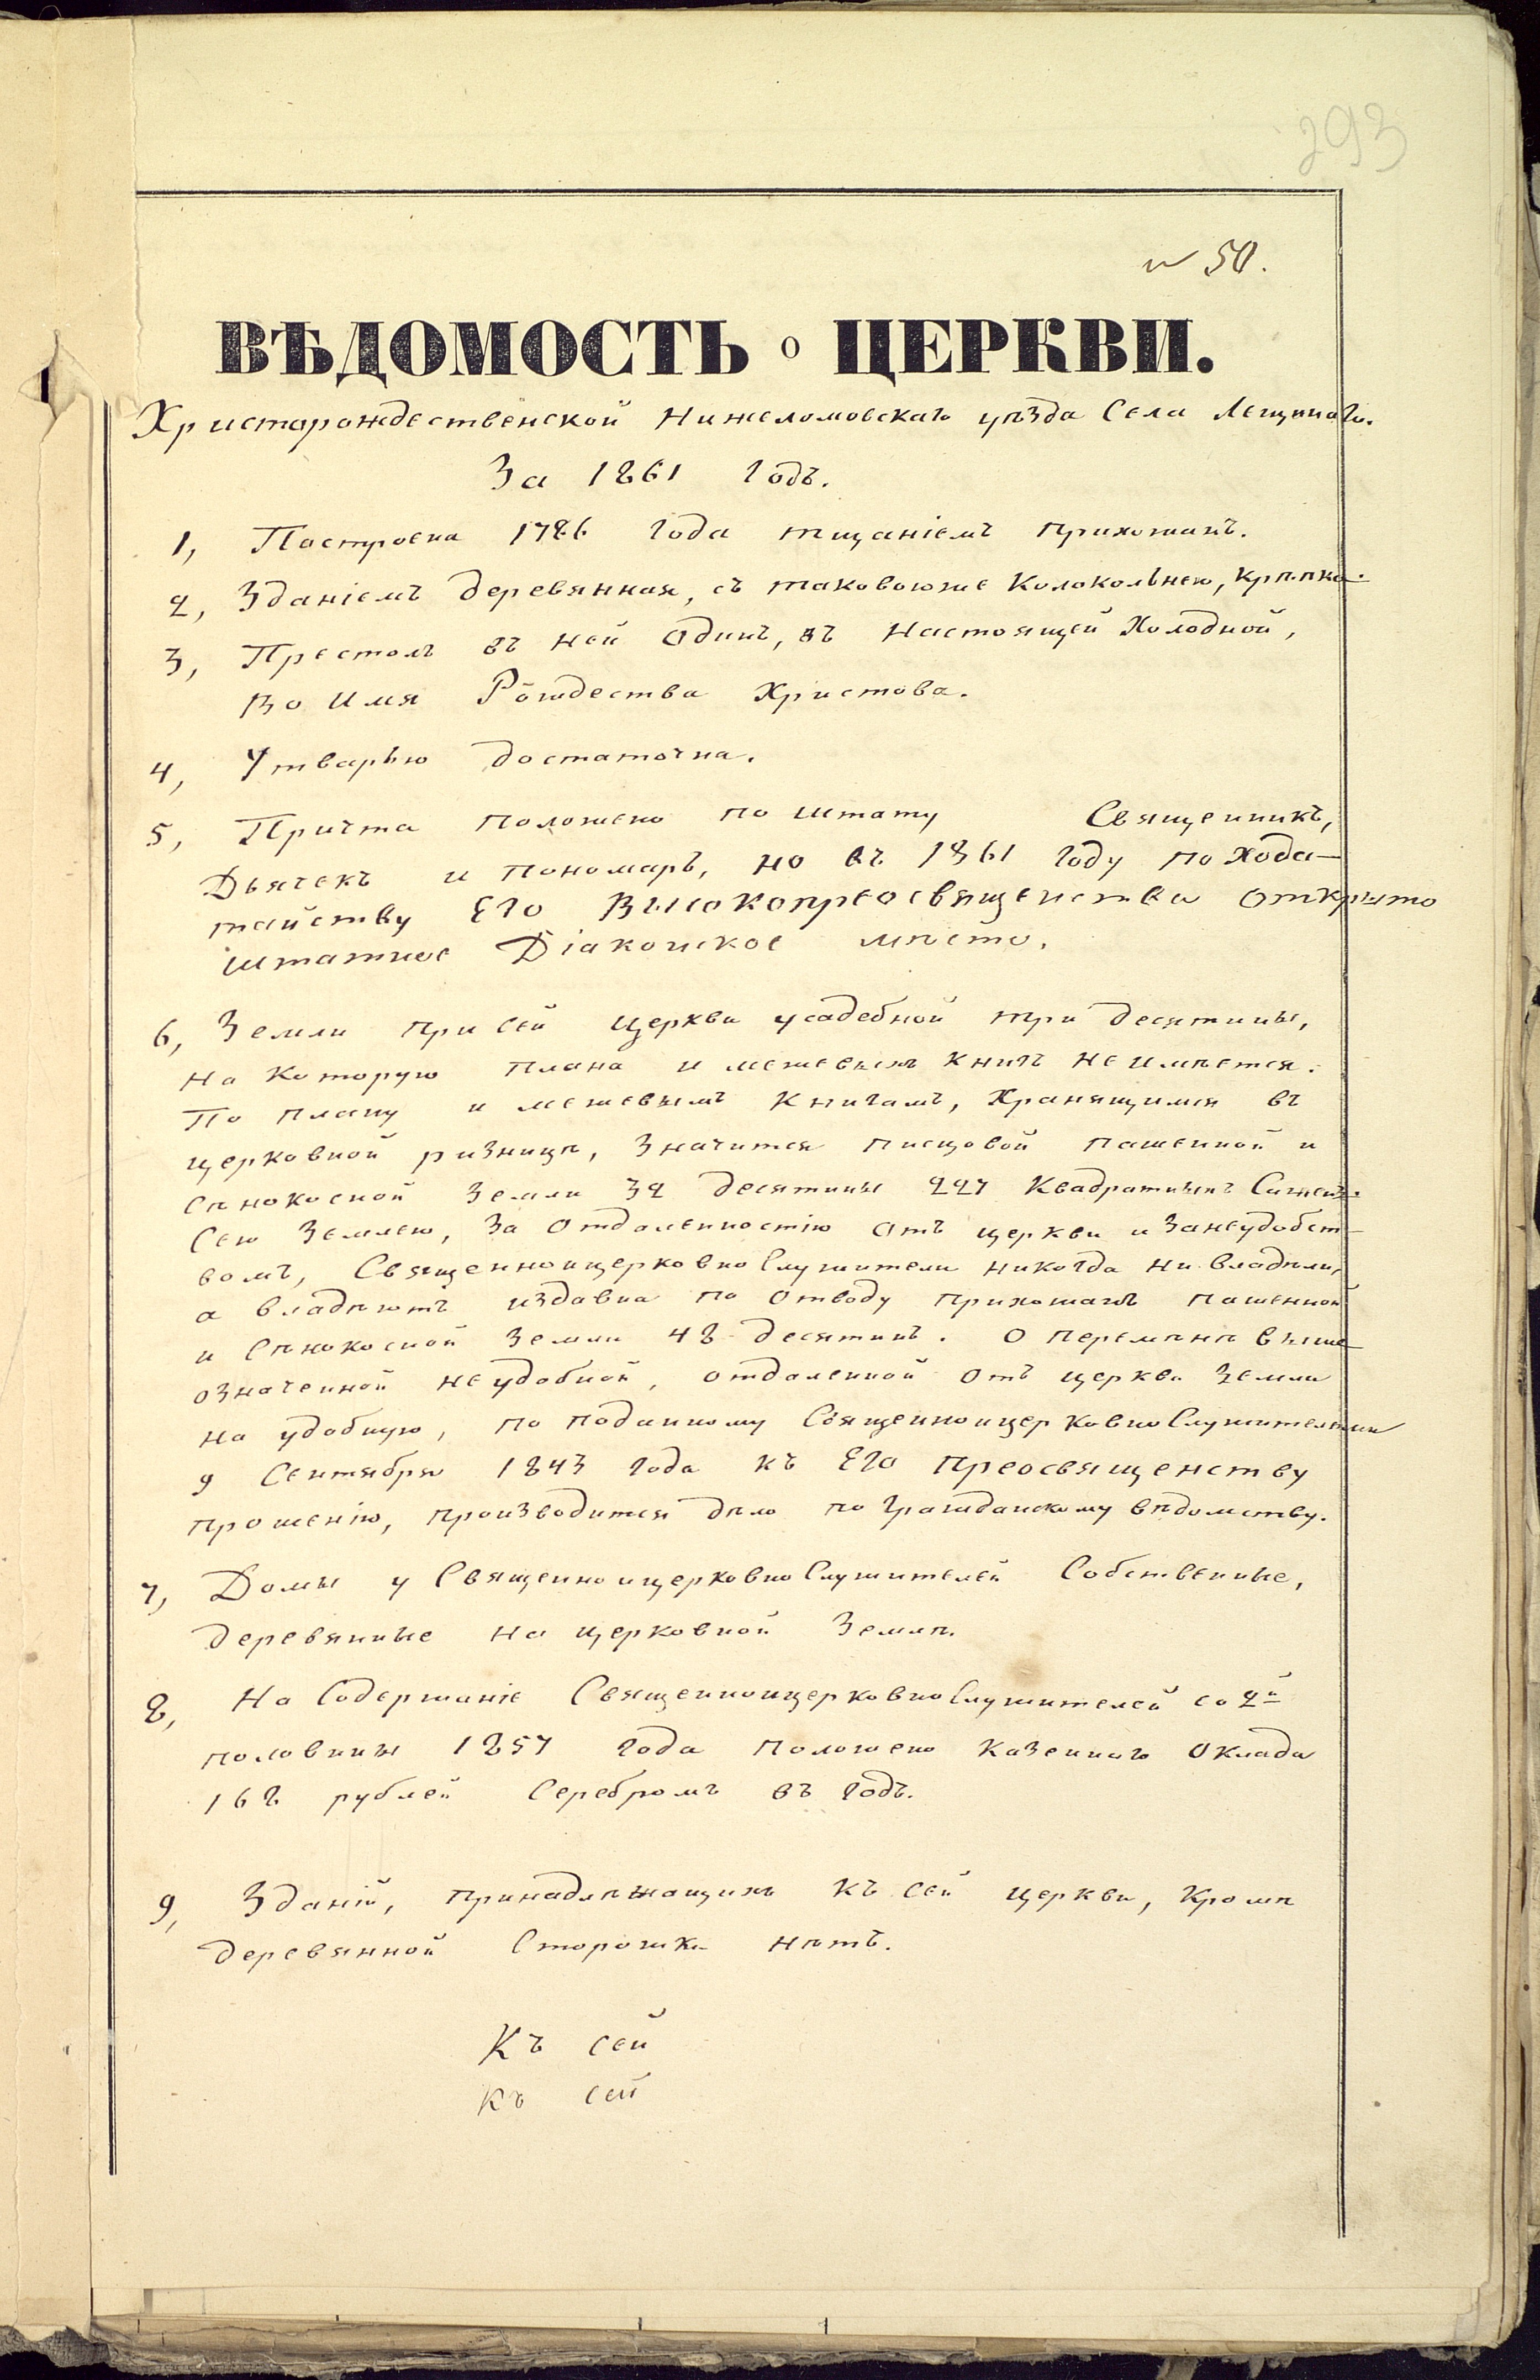 293
№ 50.
ВѢДОМОСТЬ о ЦЕРКВИ.
Христорождественской Нижеломовскаго уѣзда Села Лещинаго.
За 1861 Годъ.
1, Построена 1786 года тщаніемъ прихожанъ.
2, Зданіемъ деревянная, съ таковоюже Колокольнею, крѣпка.
3, Престолъ въ ней одинъ, въ Настоящей Холодной,
Во Имя Рождества Христова.
4, Утварью достаточна.
5, Причта положено по штату Священникъ,
Дьячекъ и пономарь, но въ 1861 году по Хода-
тайству Его Высокопреосвященства открыто
штатное Діаконское мѣсто.
6, Земли при сей Церкви усадебной три десятины,
на которую плана и межевыхъ книгъ не имѣется.
По плану и межевымъ Книгамъ, Хранящимся въ
церковной ризницѣ, значится писцовой пашенной и
сѣнокосной земли 32 десятины 227 Квадратныхъ Сажень.
Сею Землею, за отдаленностію отъ церкви и Занеудобст-
вомъ, Священноицерковно Служители никогда не владѣли,
а владѣютъ издавна по отводу прихожанъ пашенной
и сѣнокосной земли 48 десятинъ. О перемѣнѣ выше
означенной неудобной, отдаленной отъ церкви земли
на удобную, по поданному Священноицерковно Служителями
9 Сентября 1843 года къ Его Преосвященству
прошенію, производится дѣло по Гражданскому вѣдомству.
7, Домы у Священноицерковно Служителей Собственные,
деревянные на церковной Землѣ.
8, На Содержаніе Священноицерковно Служителей со 2й
половины 1857 года положено казеннаго Оклада
168 рублей Серебромъ въ годъ.
9, Зданій, принадлѣжащихъ къ сей церкви, кромѣ
деревянной Сторожки нѣтъ.
Къ сей
къ сей